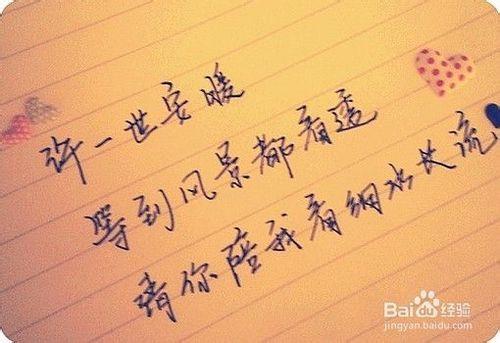 许一世安暖
等到风景都看透
请你陪我看细水长流
Baidu经验
jingyan.baidu.com